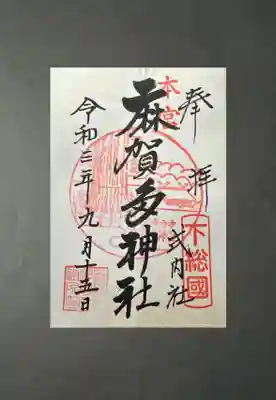 奉拝
下総國
式内社
本宮
麻賀多神社
令和三年九月十五日